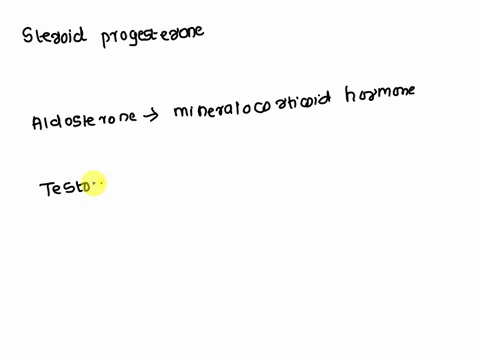 Steroid progesterone
Aldosterone → mineralocorticoid hormone
Testo